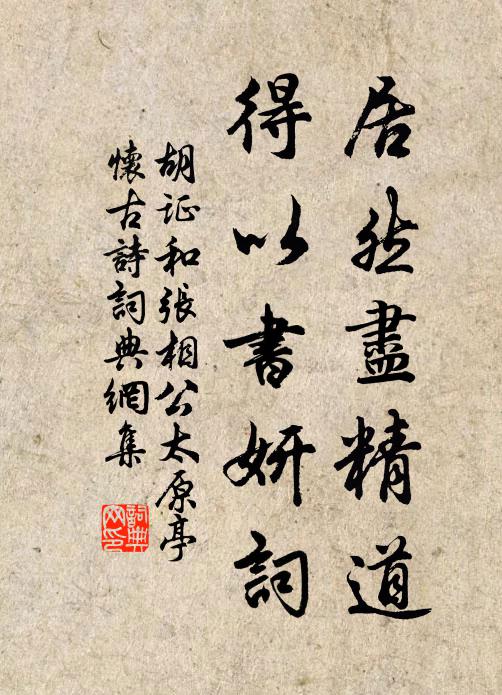 居然盡精道
得以書妍詞
胡证和張相公太原亭
懷古詩詞典網集
詞典网印